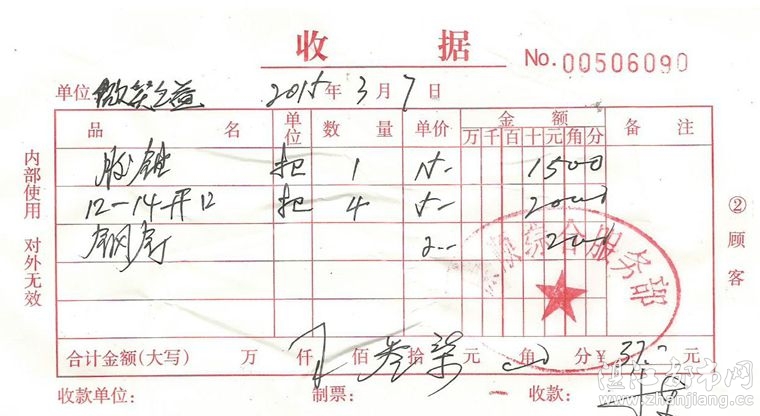 收 据
No.00506090
单位 微笑公益 2015 年 3 月 7 日
品 名 单位 数 量 单价 金 额 备 注
万 千 百 十 元 角 分
把 1 15- 1500
12-14开12 把 4 5- 2000
钢钉 2-- 200
综合服务部
合计金额(大写) 万 仟 佰 叁 拾 柒 元 角 分 ¥ 37.-
收款单位: 制票: 收款:
内部使用 对外无效
② 顾客
湛江都市网
www.zhanjiang.cc